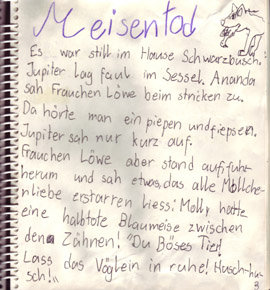 Meisentod
Es war still im Hause Schwarzbusch.
Jupiter lag faul im Sessel. Ananda
sah Frauchen Löwe beim stricken zu.
Da hörte man ein piepen und fiepsen.
Jupiter sah nur kurz auf.
Frauchen Löwe aber stand auf, fuhr
herum und sah etwas, das alle Mollchen-
liebe erstarren liess: Molly hatte
eine halbtote Blaumeise zwischen
den Zähnen! "Du Böses Tier!
Lass das Vöglein in ruhe! Husch-hu-
sch!"
3